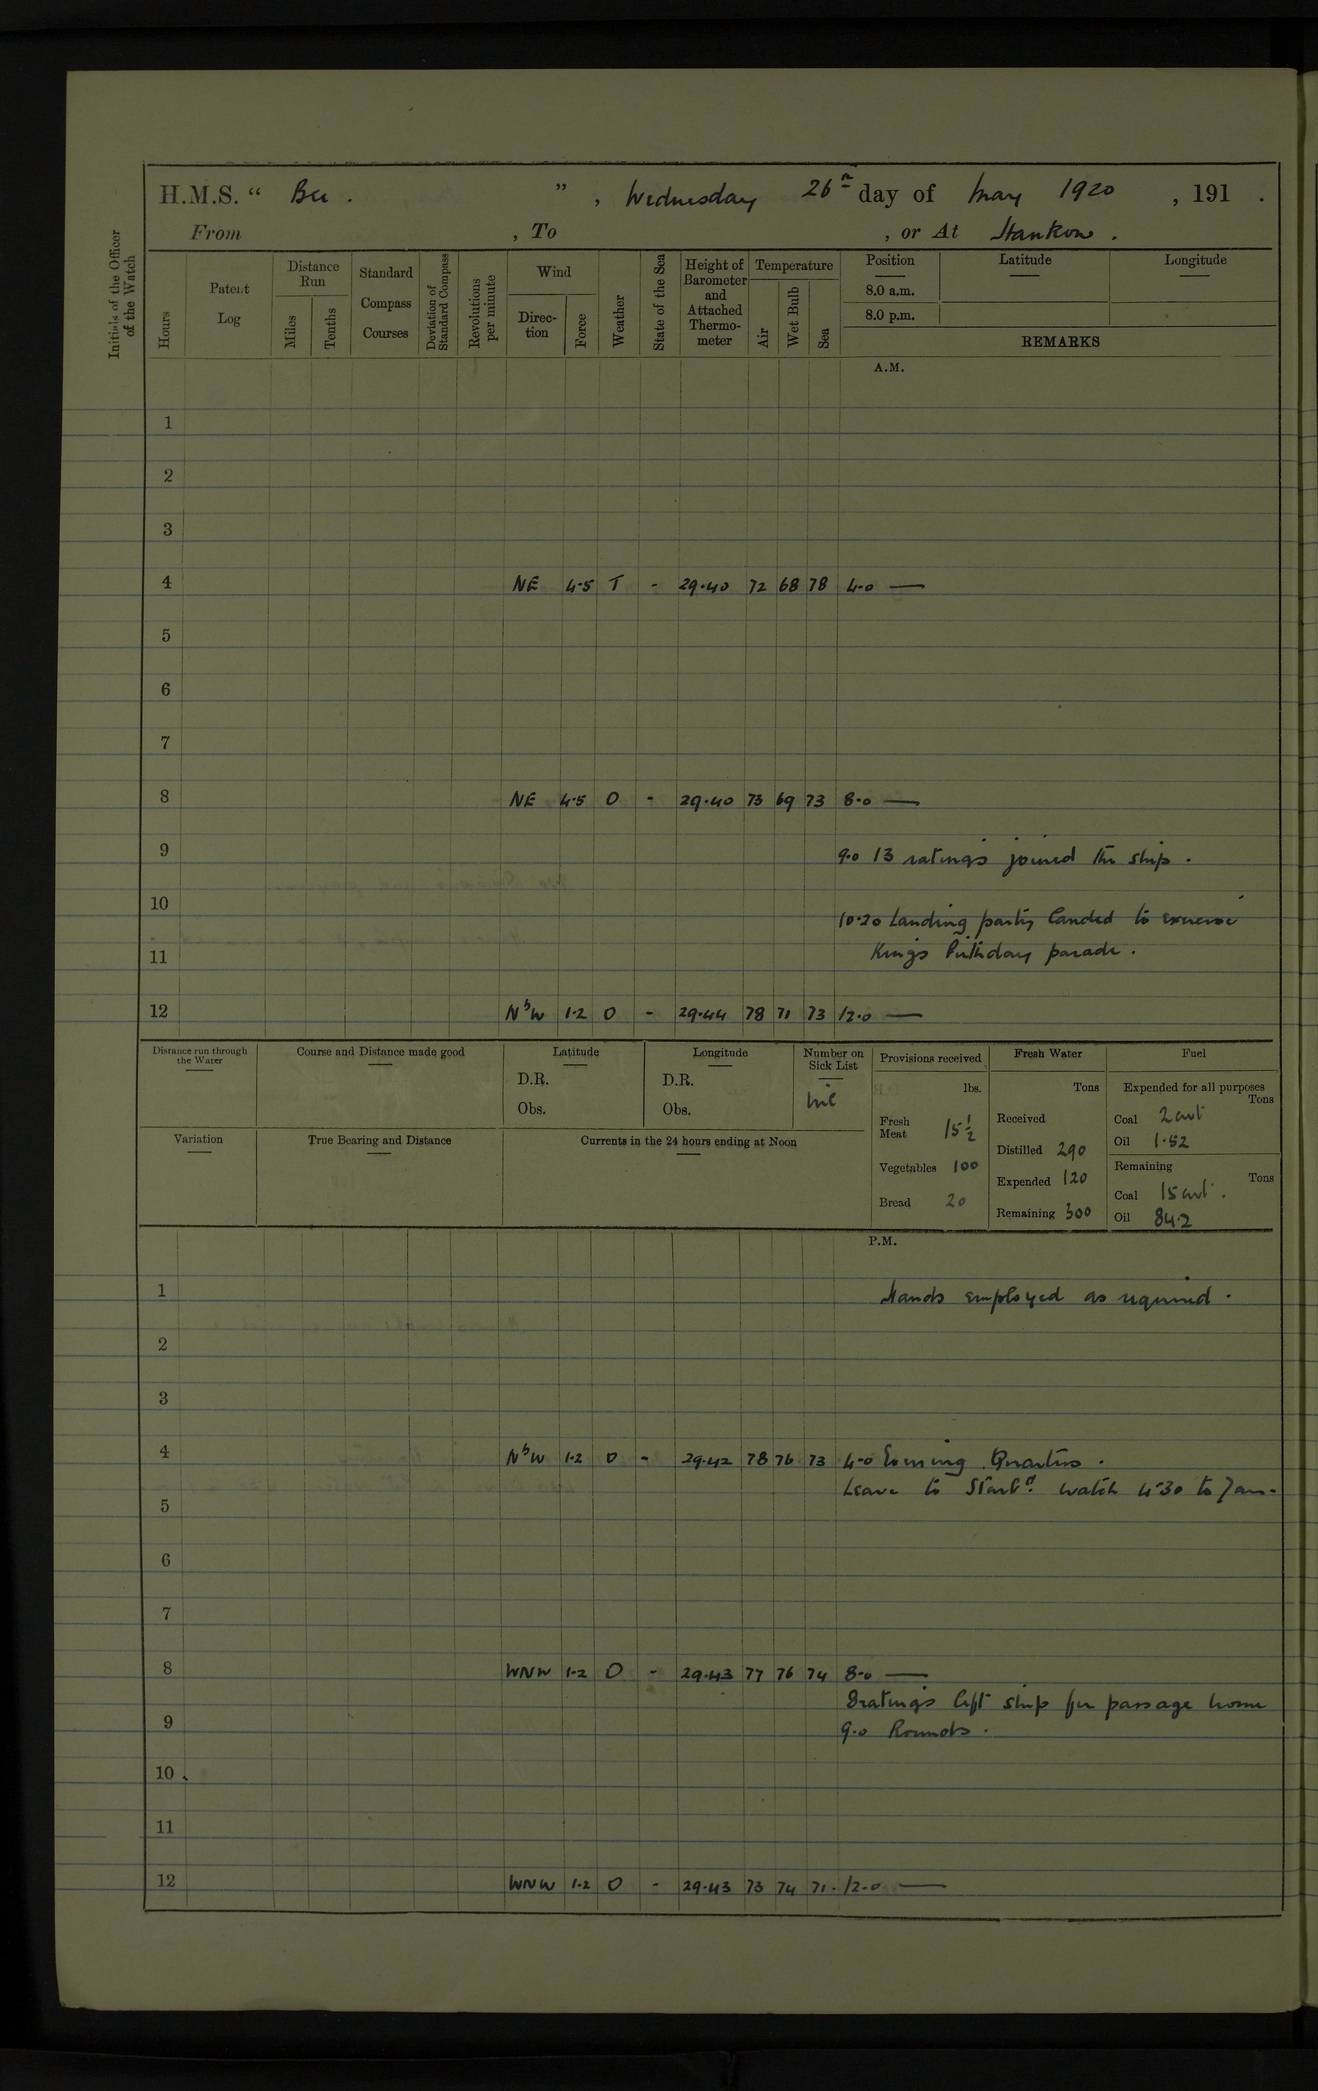 H.M.S. " Bee . " , Wednesday 26th day of May 1920 , 191 .
From , To , or At Hankow .
Initials of the Officer of the Watch
Hours
Patent Log
Distance Run
Miles
Tenths
Standard Compass Courses
Deviation of Standard Compass
Revolutions per minute
Wind
Direction
Force
Weather
State of the Sea
Height of Barometer and Attached Thermometer
Temperature
Air
Wet Bulb
Sea
Position
8.0 a.m.
8.0 p.m.
Latitude
Longitude
REMARKS
A.M.
1
2
3
4 NE 4-5 T - 29.40 72 68 78 4.0 —
5
6
7
8 NE 4-5 O - 29.40 73 69 73 8.0 —
9 9.0 13 ratings joined the ship .
10 10.20 Landing party landed to exercise
11 Kings Birthday parade .
12 NbW 1-2 O - 29.44 78 71 73 12.0 —
Distance run through the Water
Course and Distance made good
Latitude
D.R.
Obs.
Longitude
D.R.
Obs.
Number on Sick List
nil
Variation
True Bearing and Distance
Currents in the 24 hours ending at Noon
Provisions received
lbs.
Fresh Meat 15 1/2
Vegetables 100
Bread 20
Fresh Water
Tons
Received
Distilled 290
Expended 120
Remaining 300
Fuel
Expended for all purposes
Tons
Coal 2 cwt
Oil 1.52
Remaining
Tons
Coal 15 cwt .
Oil 84.2
P.M.
1 Hands employed as required .
2
3
4 NbW 1-2 O - 29.42 78 76 73 4.0 Evening Quarters .
Leave to Starbd watch 4.30 to 7 am.
5
6
7
8 WNW 1-2 O - 29.43 77 76 74 8.0 —
8 ratings left ship for passage home
9 9.0 Rounds .
10
11
12 WNW 1-2 O - 29.43 73 74 71 . 12.0 —